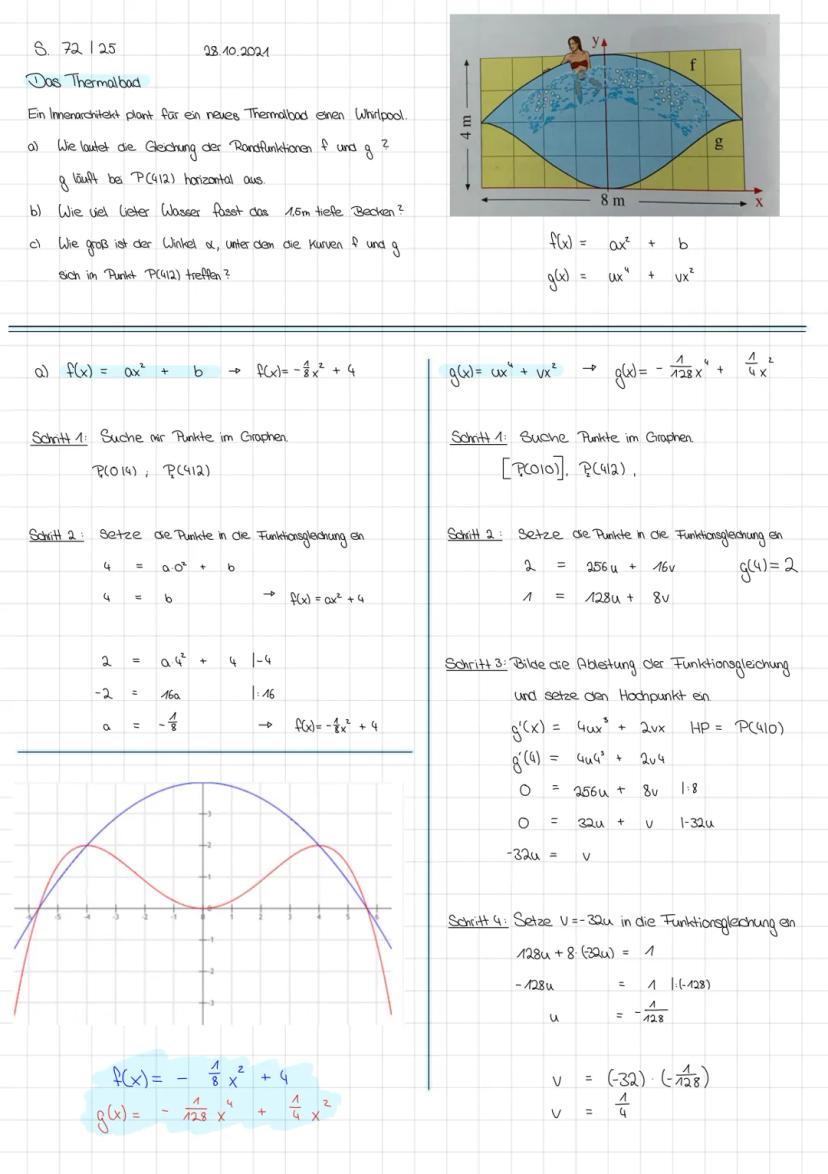 S. 72 | 25 28.10.2021
Das Thermalbad
Ein Innenarchitekt plant für ein neues Thermalbad einen Whirlpool.
a) Wie lautet die Gleichung der Randfunktionen f und g ?
g läuft bei P(4|2) horizontal aus.
b) Wie viel Lieter Wasser fasst das 1,5m tiefe Becken?
c) Wie groß ist der Winkel α, unter dem die Kurven f und g
sich im Punkt P(4|2) treffen?
y
f
4 m
g
8 m
x
f(x) = ax² + b
g(x) = ux⁴ + vx²
a) f(x) = ax² + b → f(x) = -1/8x² + 4
Schritt 1: Suche mir Punkte im Graphen.
P(0|4) ; P(4|2)
Schritt 2: Setze die Punkte in die Funktionsgleichung ein
4 = a·0² + b
4 = b → f(x) = ax² + 4
2 = a·4² + 4 |-4
-2 = 16a |:16
a = -1/8 → f(x) = -1/8x² + 4
3
2
1
-6 -5 -4 -3 -2 -1 0 1 2 3 4 5 6
-1
-2
-3
f(x) = - 1/8 x² + 4
g(x) = - 1/128 x⁴ + 1/4 x²
g(x) = ux⁴ + vx² → g(x) = - 1/128 x⁴ + 1/4 x²
Schritt 1: Suche Punkte im Graphen.
[P(0|0)], P(4|2),
Schritt 2: Setze die Punkte in die Funktionsgleichung ein
2 = 256u + 16v g(4) = 2
1 = 128u + 8v
Schritt 3: Bilde die Ableitung der Funktionsgleichung
und setze den Hochpunkt ein.
g'(x) = 4ux³ + 2vx HP = P(4|0)
g'(4) = 4u4³ + 2v4
0 = 256u + 8v |:8
0 = 32u + v |-32u
-32u = v
Schritt 4: Setze v = -32u in die Funktionsgleichung ein
128u + 8·(-32u) = 1
-128u = 1 |:(-128)
u = -1/128
v = (-32) · (-1/128)
v = 1/4